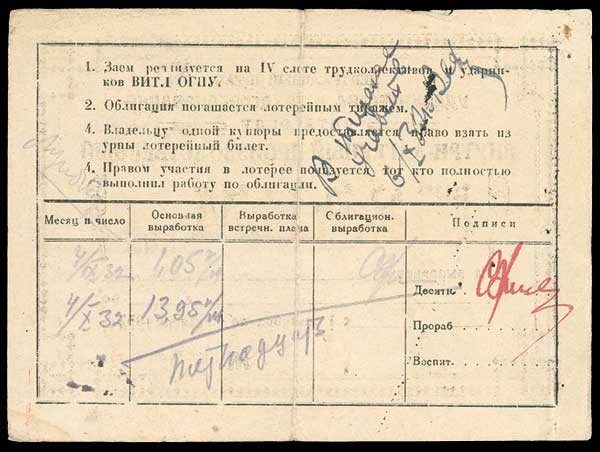 1. Заем реализуется на IV слете трудколлективов и ударни-
ков ВИТЛ ОГПУ.
2. Облигация погашается лотерейным тиражем.
4. Владельцу одной купюры предоставляется право взять из
урны лотерейный билет.
4. Правом участия в лотерее пользуется тот кто полностью
выполнил работу по облигации.
Месяц и число
Основная
выработка
Выработка
встречн. плана
Сблигацион.
выработка
Подписи
4/IX 32 1,05
4/X 32 13,95
Десятн.
Прораб
Воспит.